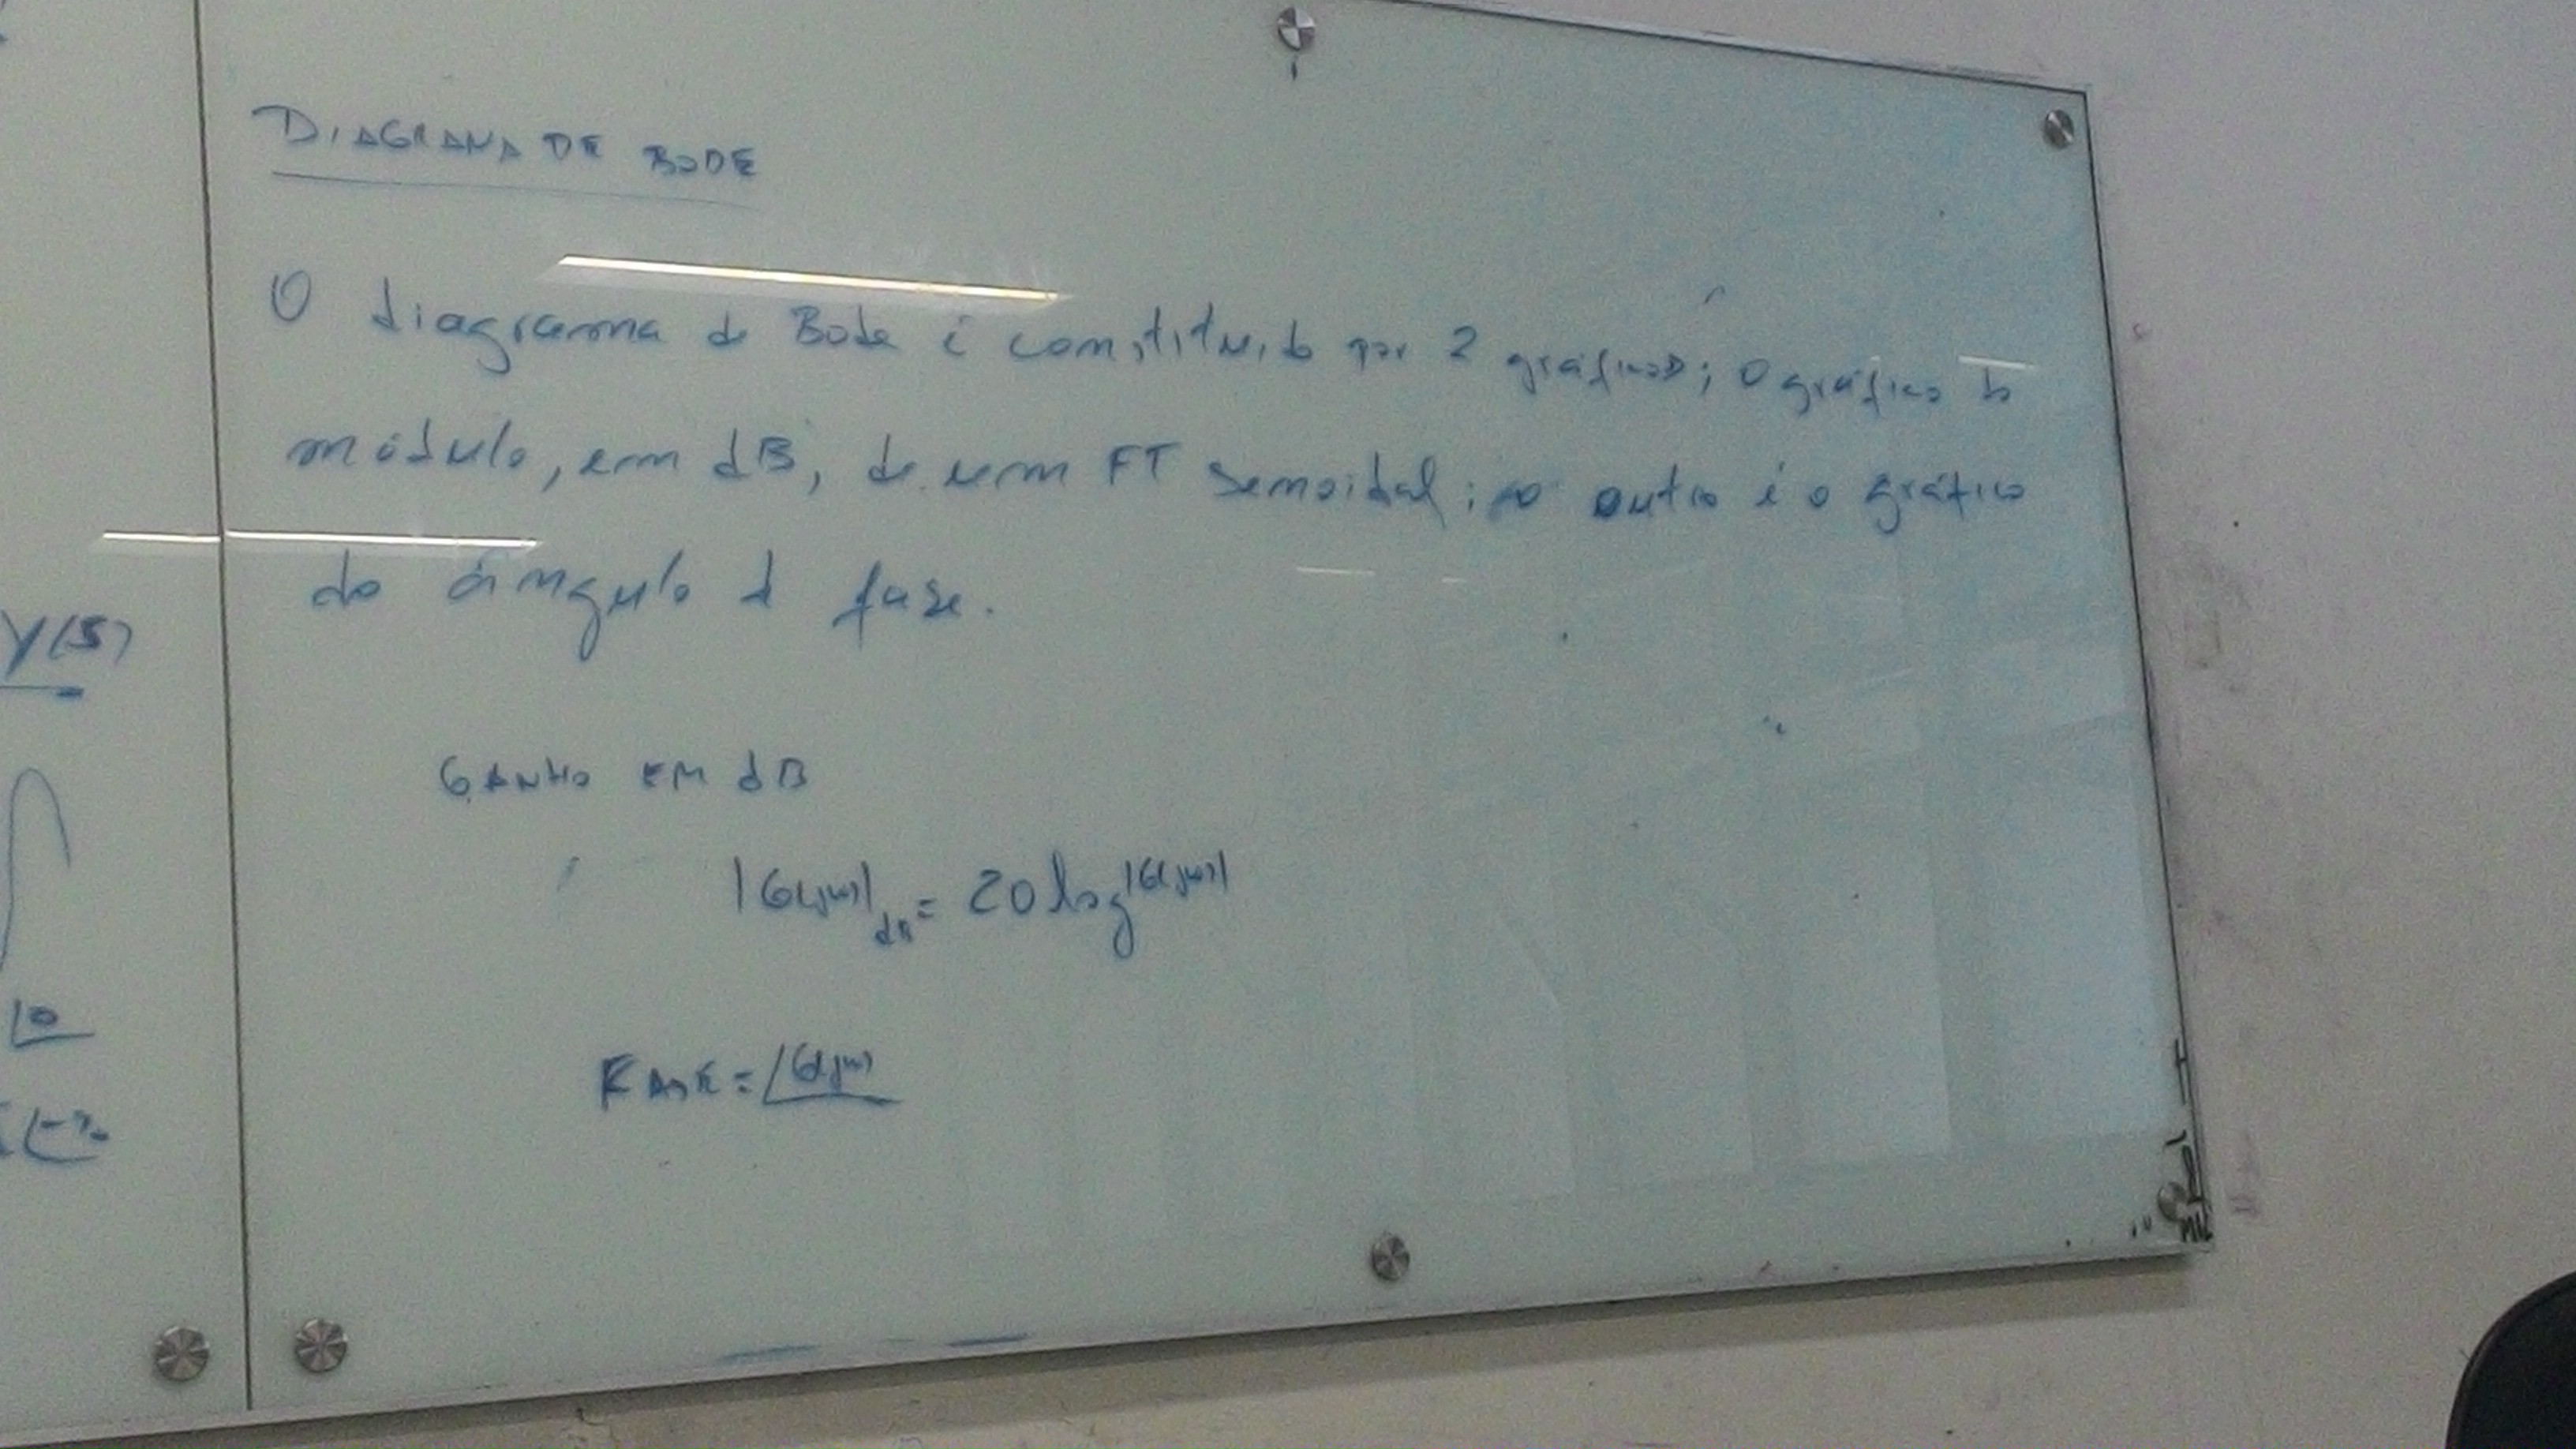 DIAGRAMA DE BODE
O diagrama de Bode é constituido por 2 gráficos; o gráfico do
módulo, em dB, de um FT senoidal; o outro é o gráfico
do ângulo d fase.
Y(S)
GANHO EM dB
|G(jω)|dB = 20 log|G(jω)|
FASE = ∠G(jω)